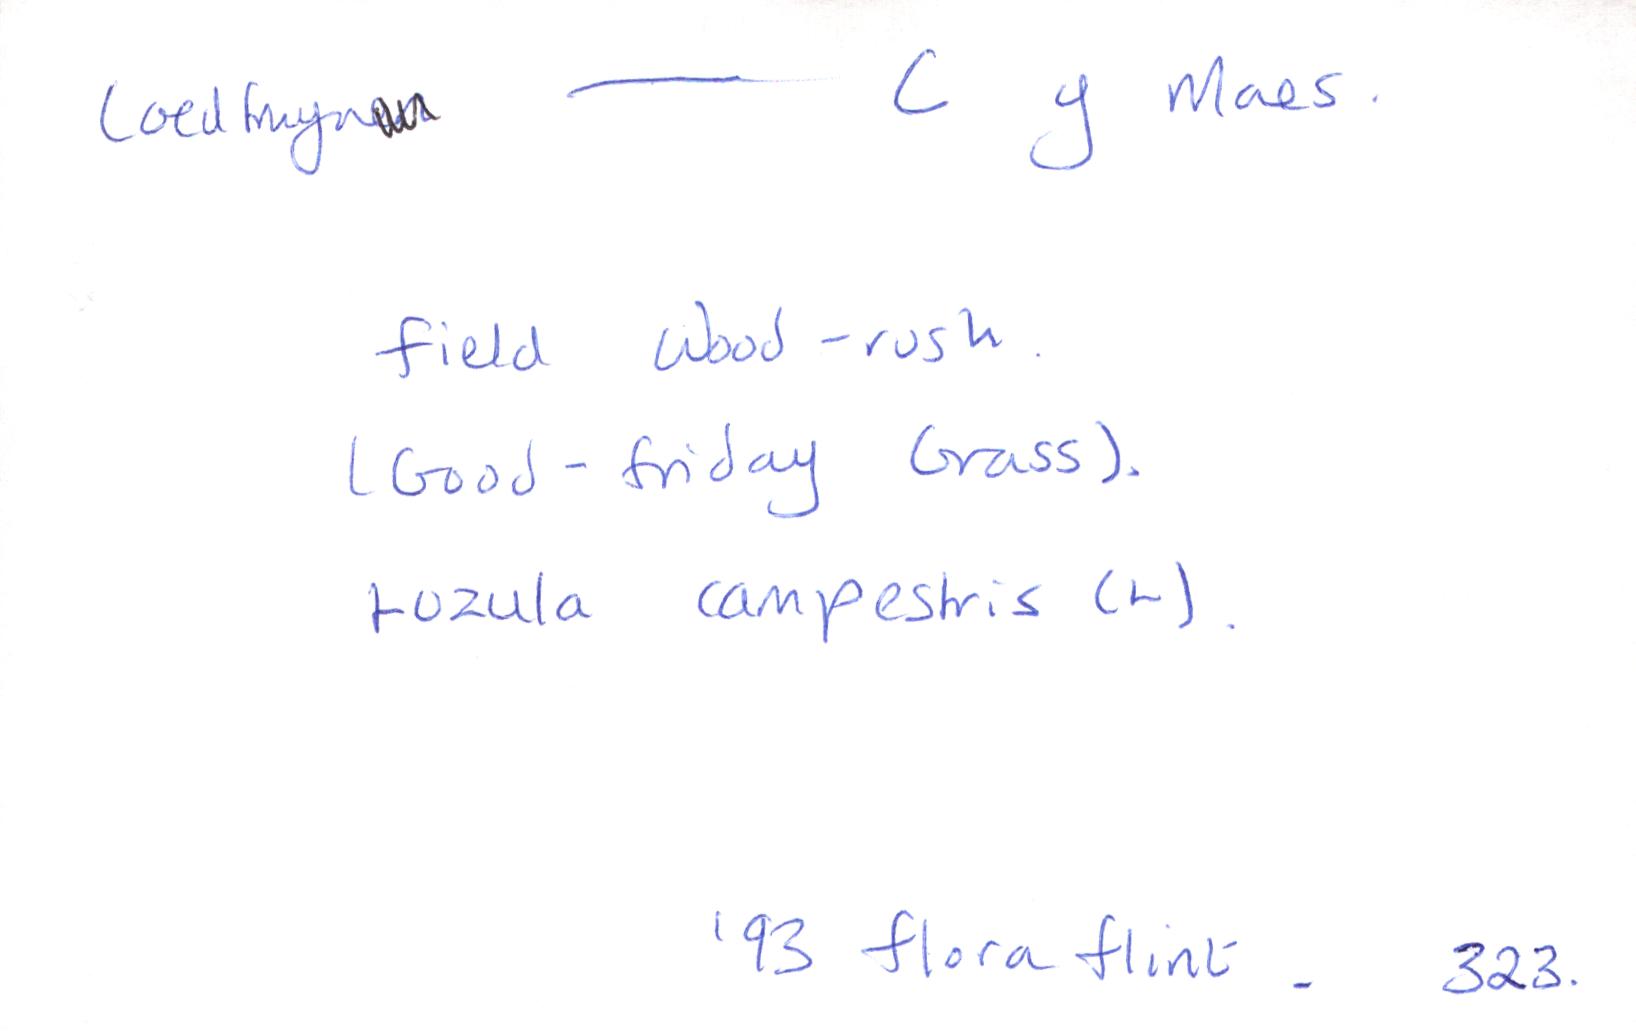 Coedfrwynau — C y Maes.
field Wood-rush.
(Good-friday Grass).
Luzula campestris (L).
'93 flora flint - 323.